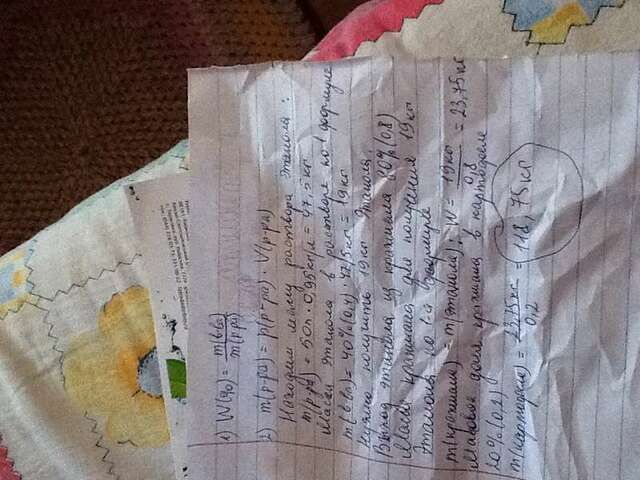 1) W(%) = m(в-ва) / m(р-ра)
2) m(р-ра) = p(р-ра) · V(р-ра)
Находим массу раствора этанола:
m(р-ра) = 50л · 0,95кг/л = 47,5 кг
Масса этанола в растворе по 1 формуле
m(в-ва) = 40%(0,4) · 47,5кг = 19кг
Нужно получить 19кг этанола.
Выход этанола из крахмала 80%(0,8)
Масса крахмала для получения 19кг
этанола по формуле
m(крахмала) = m(этанола) : W = 19кг / 0,8 = 23,75кг
Массовая доля крахмала в картофеле
20%(0,2)
m(картофеля) = 23,75кг / 0,2 = 118,75кг